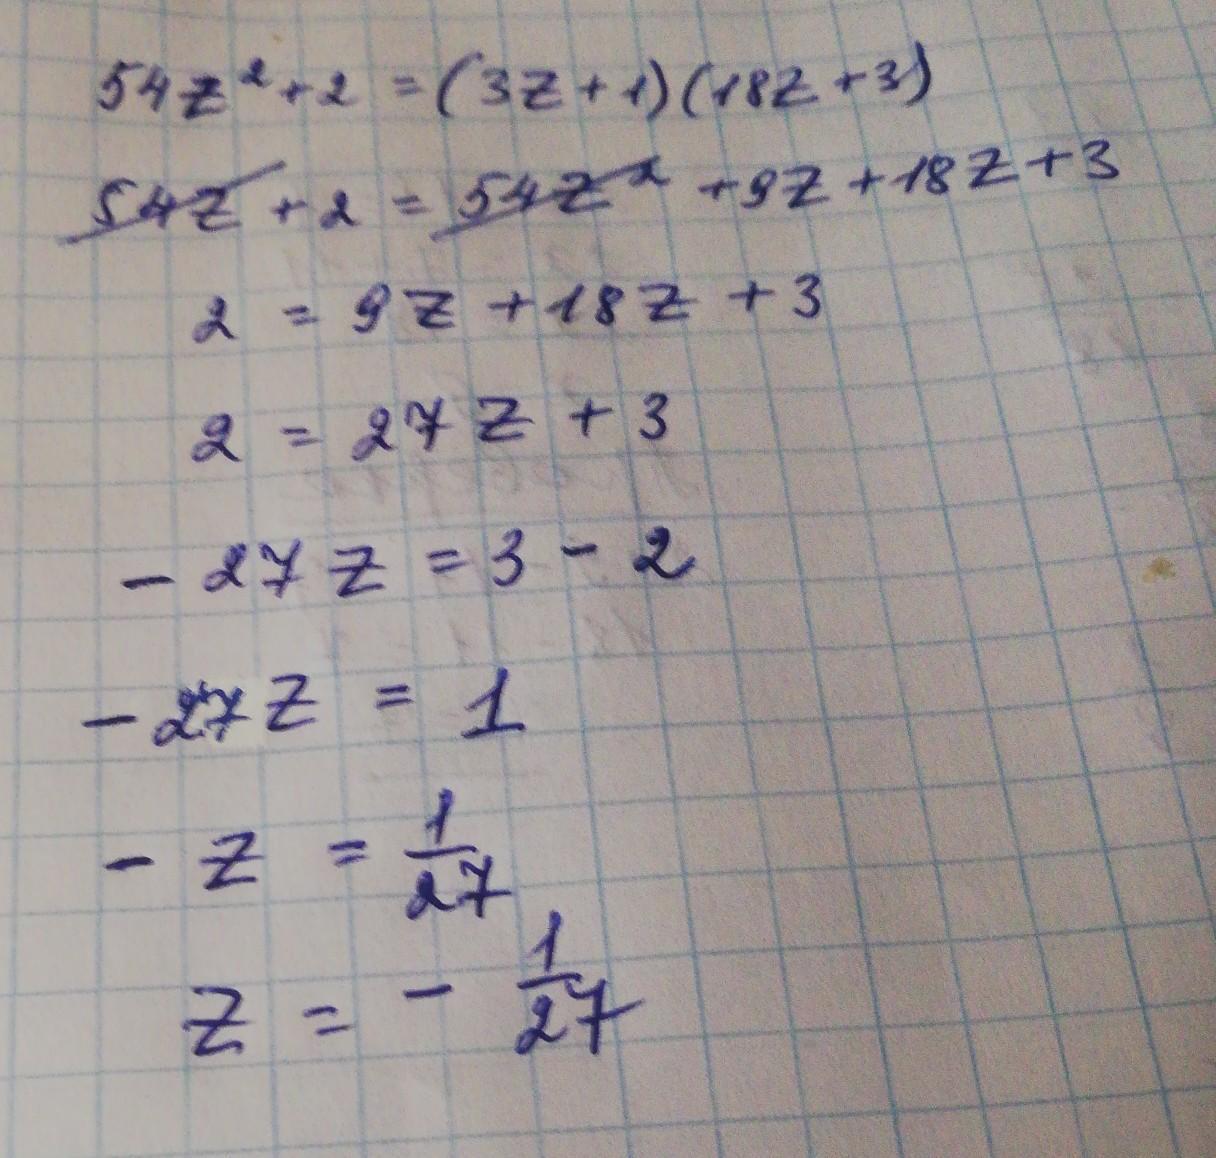 54z² + 2 = (3z + 1)(18z + 3)
54z + 2 = 54z² + 9z + 18z + 3
2 = 9z + 18z + 3
2 = 27z + 3
- 27z = 3 - 2
- 27z = 1
- z = 1/27
z = - 1/27